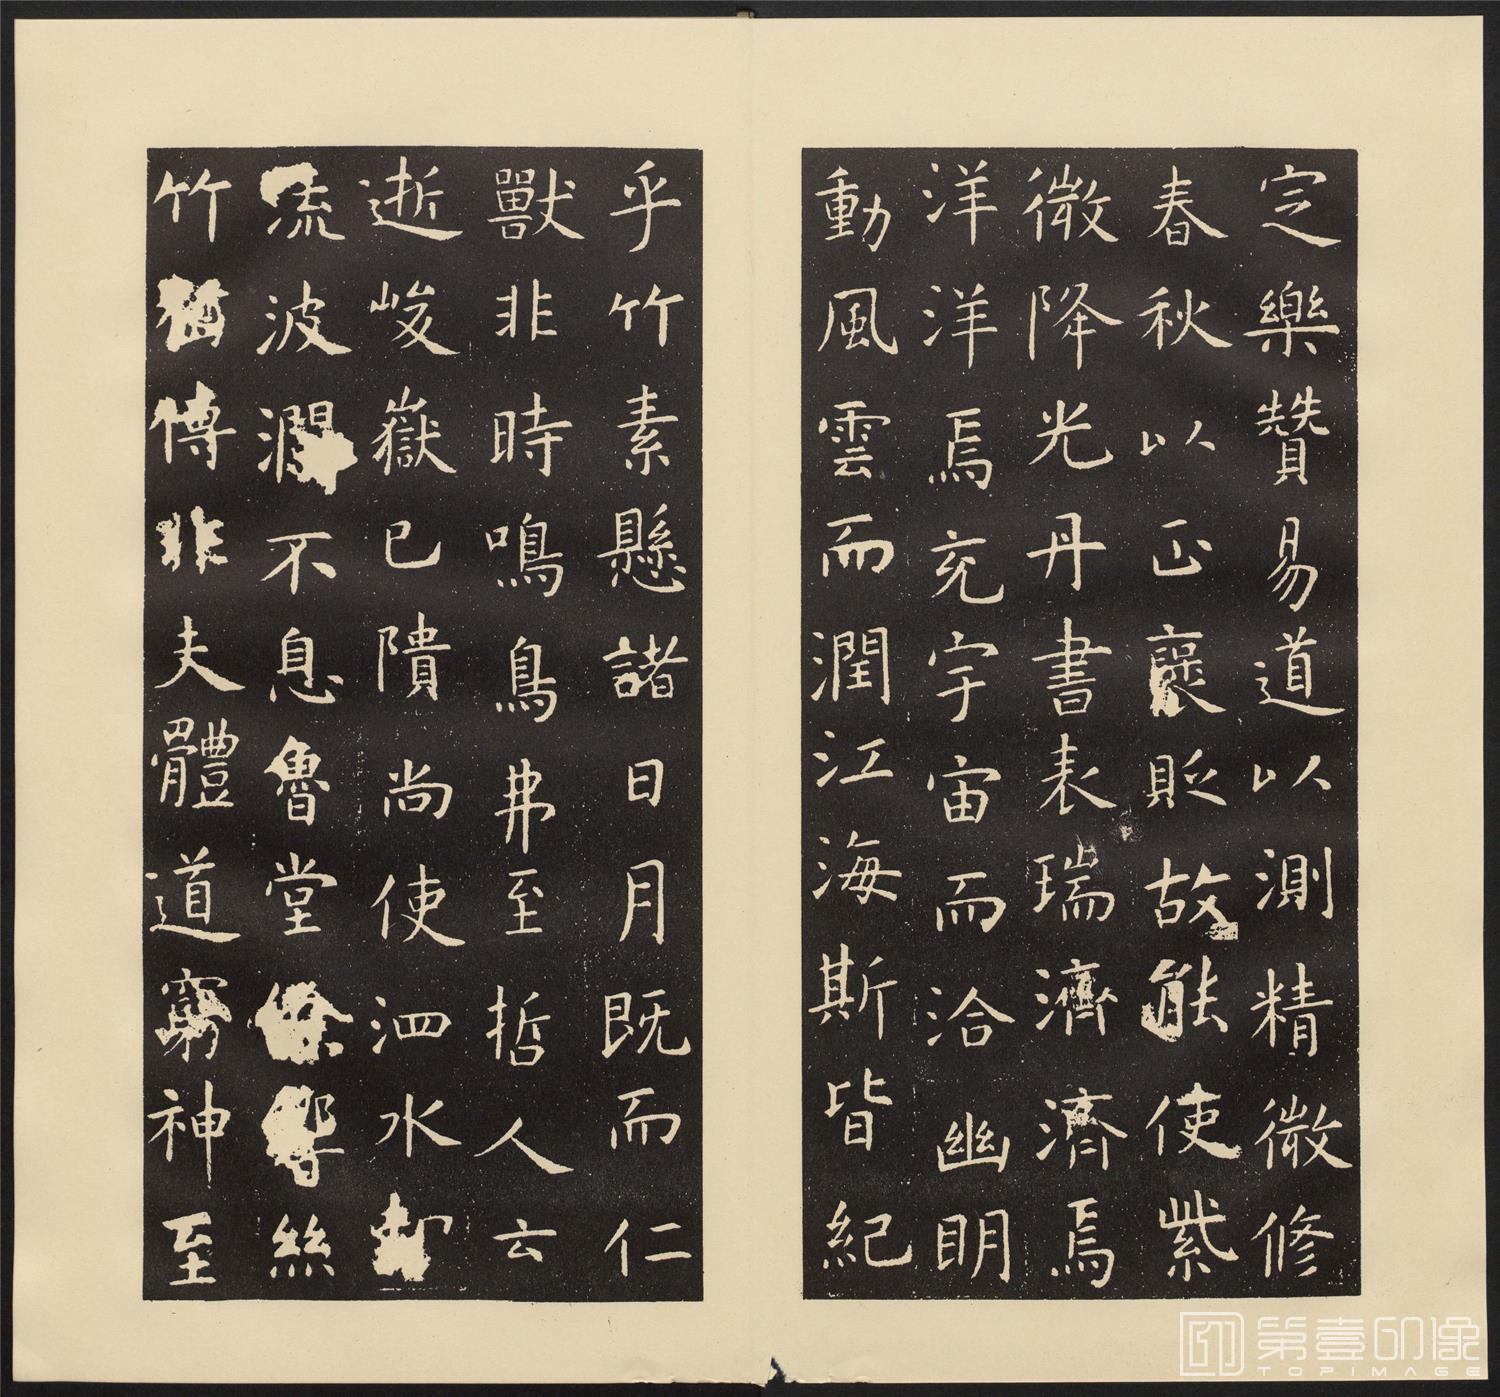 定樂贊易道以測精微修
春秋以正襃貶故能使紫
微降光丹書表瑞濟濟焉
洋洋焉充宇宙而洽幽明
動風雲而潤江海斯皆紀
乎竹素懸諸日月既而仁
獸非時鳴鳥弗至哲人云
逝峻嶽已隤尚使泗水却
流波瀾不息魯堂餘響絲
竹猶傳非夫體道窮神至
第壹印像
TOPIMAGE